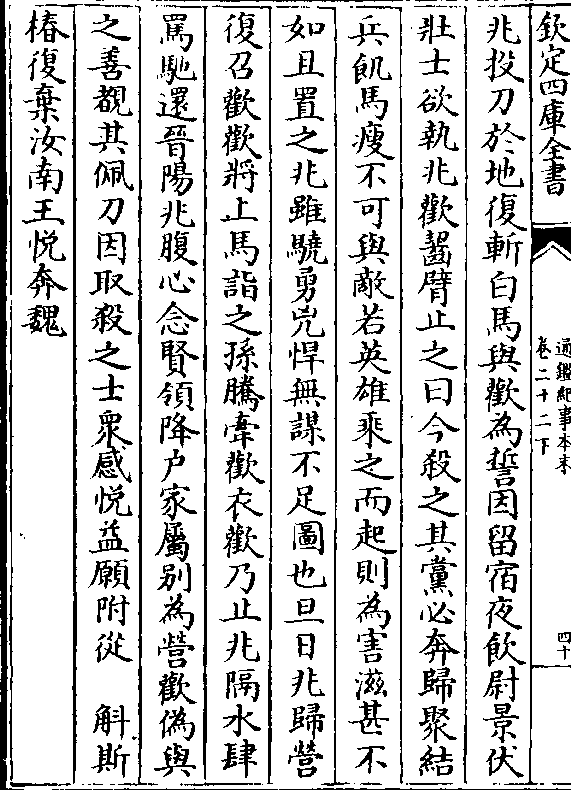 欽定四庫全書
通鑑紀事本末
卷二十二下
四十
兆投刀於地復斬白馬與歡為誓因留宿夜飲尉景伏
壯士欲執兆歡齧臂止之曰今殺之其黨必奔歸聚結
兵飢馬瘦不可與敵若英雄乘之而起則為害滋甚不
如且置之兆雖驍勇兇悍無謀不足圖也旦日兆歸營
復召歡歡將上馬詣之孫騰牽歡衣歡乃止兆隔水肆
罵馳還晉陽兆腹心念賢領降户家屬别為營歡偽與
之善觀其佩刀因取殺之士衆感悦益願附從　斛斯
椿復棄汝南王悦奔魏